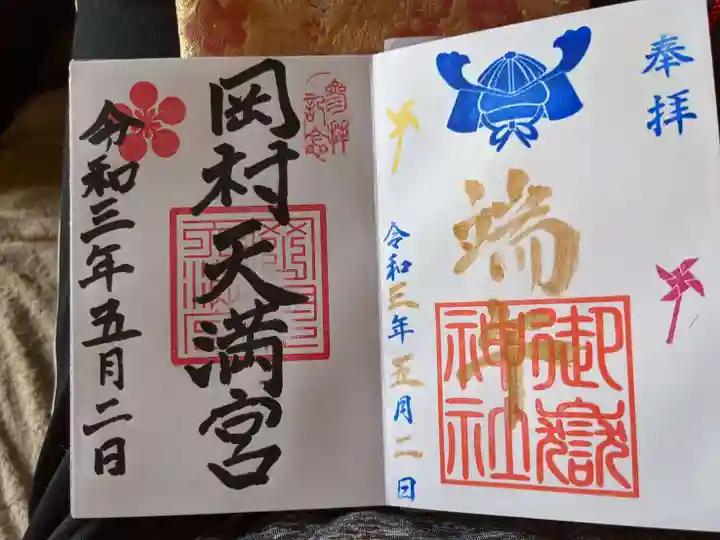 奉拝
端午
御嶽
神社
令和三年五月二日
参拝
記念
岡村天満宮
令和三年五月二日